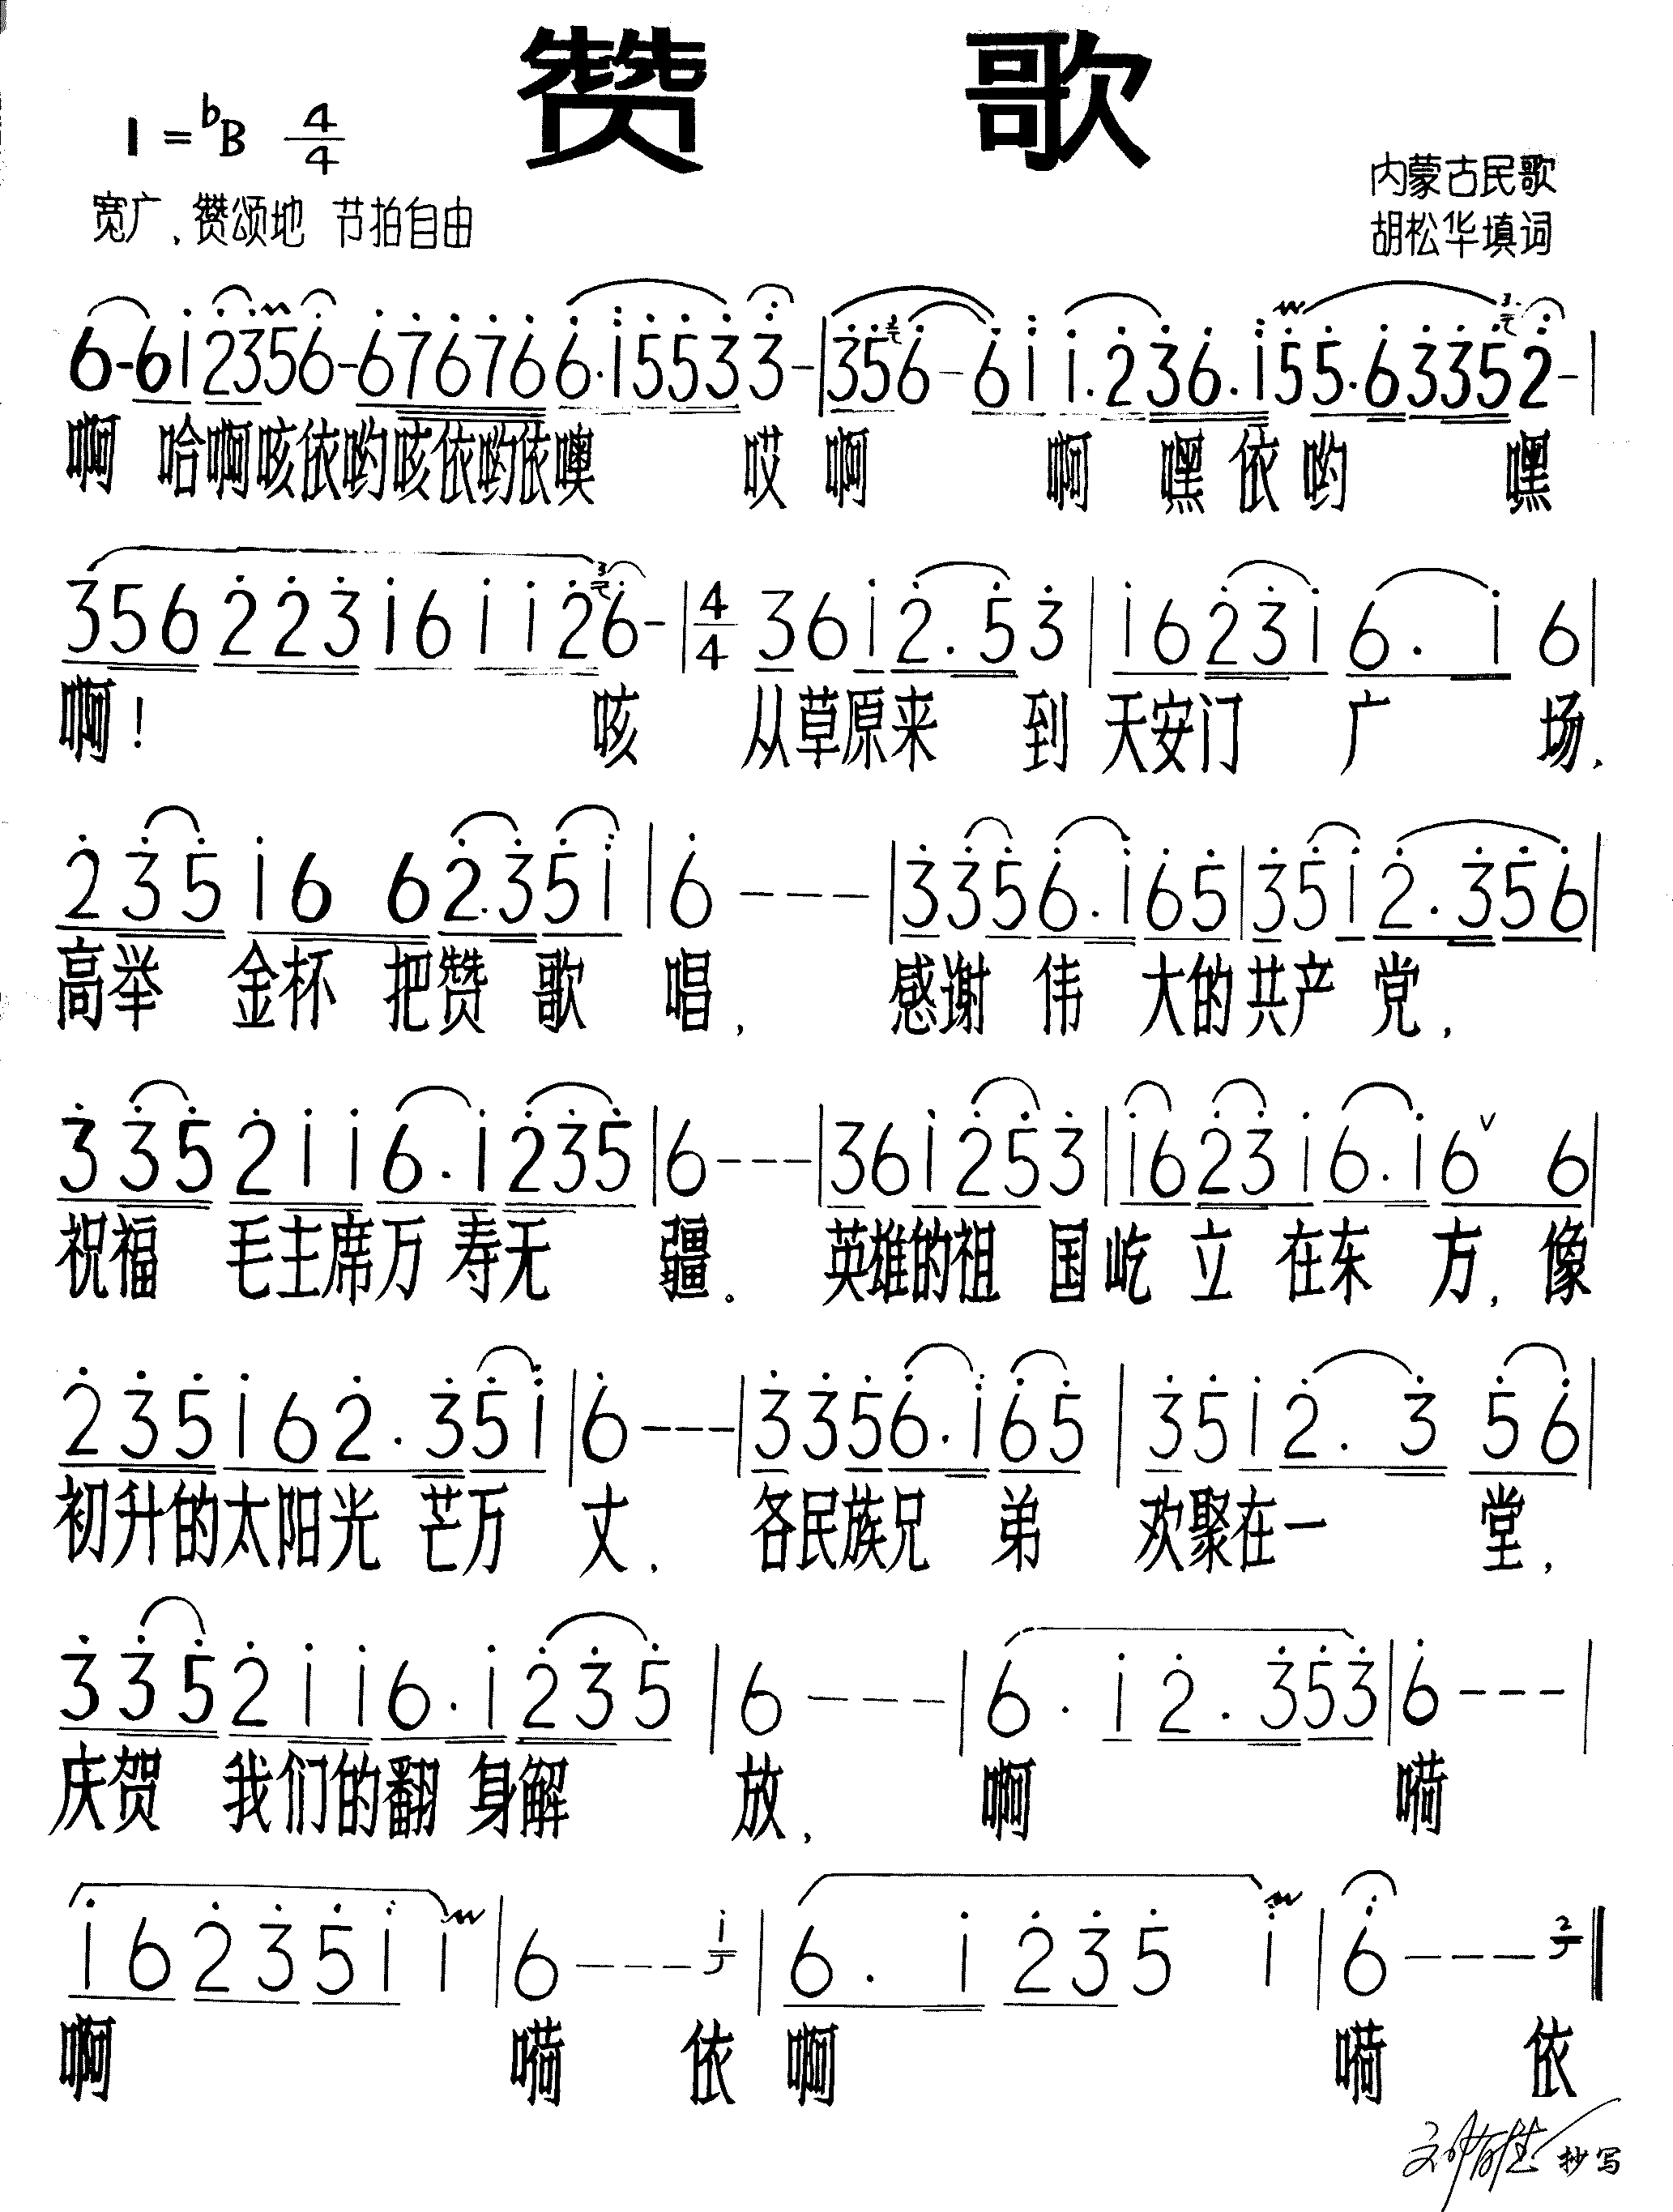 赞 歌
1=♭B 4/4
内蒙古民歌
宽广、赞颂地 节拍自由
胡松华填词
啊 哈啊咳依哟咳依哟依噢 哎 啊 啊 嘿 依 哟 嘿
356 223 16 112 6 - | 4/4 36 1 2.5 3 | 16 231 6.1 6 |
啊! 咳 从草原来 到 天安门 广 场、
235 166 2.3 51 | 6 - - - | 3 35 6.1 65 | 3 51 2.3 56 |
高举 金杯 把赞 歌 唱, 感谢 伟 大的共产 党,
335 211 6.1 235 | 6 - - - | 36 1 25 3 | 16 231 6.1 6 ∨ 6 |
祝福 毛主席万 寿无 疆。 英雄的祖 国屹 立 在东 方, 像
235 16 2.3 51 | 6 - - - | 3 35 6.1 65 | 3 51 2.3 56 |
初升的太阳光 芒万 丈, 各民族兄 弟 欢聚在一 堂,
335 211 6.1 235 | 6 - - - | 6.1 2.3 53 | 6 - - - |
庆贺 我们的翻 身解 放, 啊 嗬
16 23 51 1 | 6 - - - 1 | 6.1 235 1 | 6 - - - 2 ‖
啊 嗬 依 啊 嗬 依
抄写